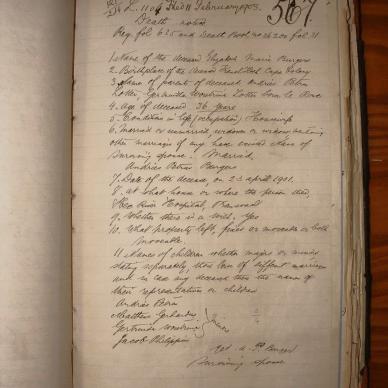 567
February 1903.
Death notice
Reg. fol 635 and Death Book no fol 31
1 Name of the deceased Elizabeth Maria Burger
2. Birthplace of the deceased Cape Colony
3. Name of parents of deceased Andries
Lotter Gertruida Lotter born le
4. Age of deceased 36 years
5. Condition in life (occupation) Housewife
6. Married or unmarried, widower or widow
other marriage if any have existed Name of
Surviving spouse. Married
Andries Petrus Burger
7. Date of the decease, on 23 april 1901.
8. at what house or where the person died.
River Hospital,
9. Whether there is a will. yes
10. What property left, fixed or movable or both
Movable
11 Names of children whether majors or minors
stating separately, those born of different marriages
and in case any deceased then the name of
their representation or children
Andries
Matthys Gerhardus
Gertruida
Jacob Philippus
Minors
Burger
Surviving spouse